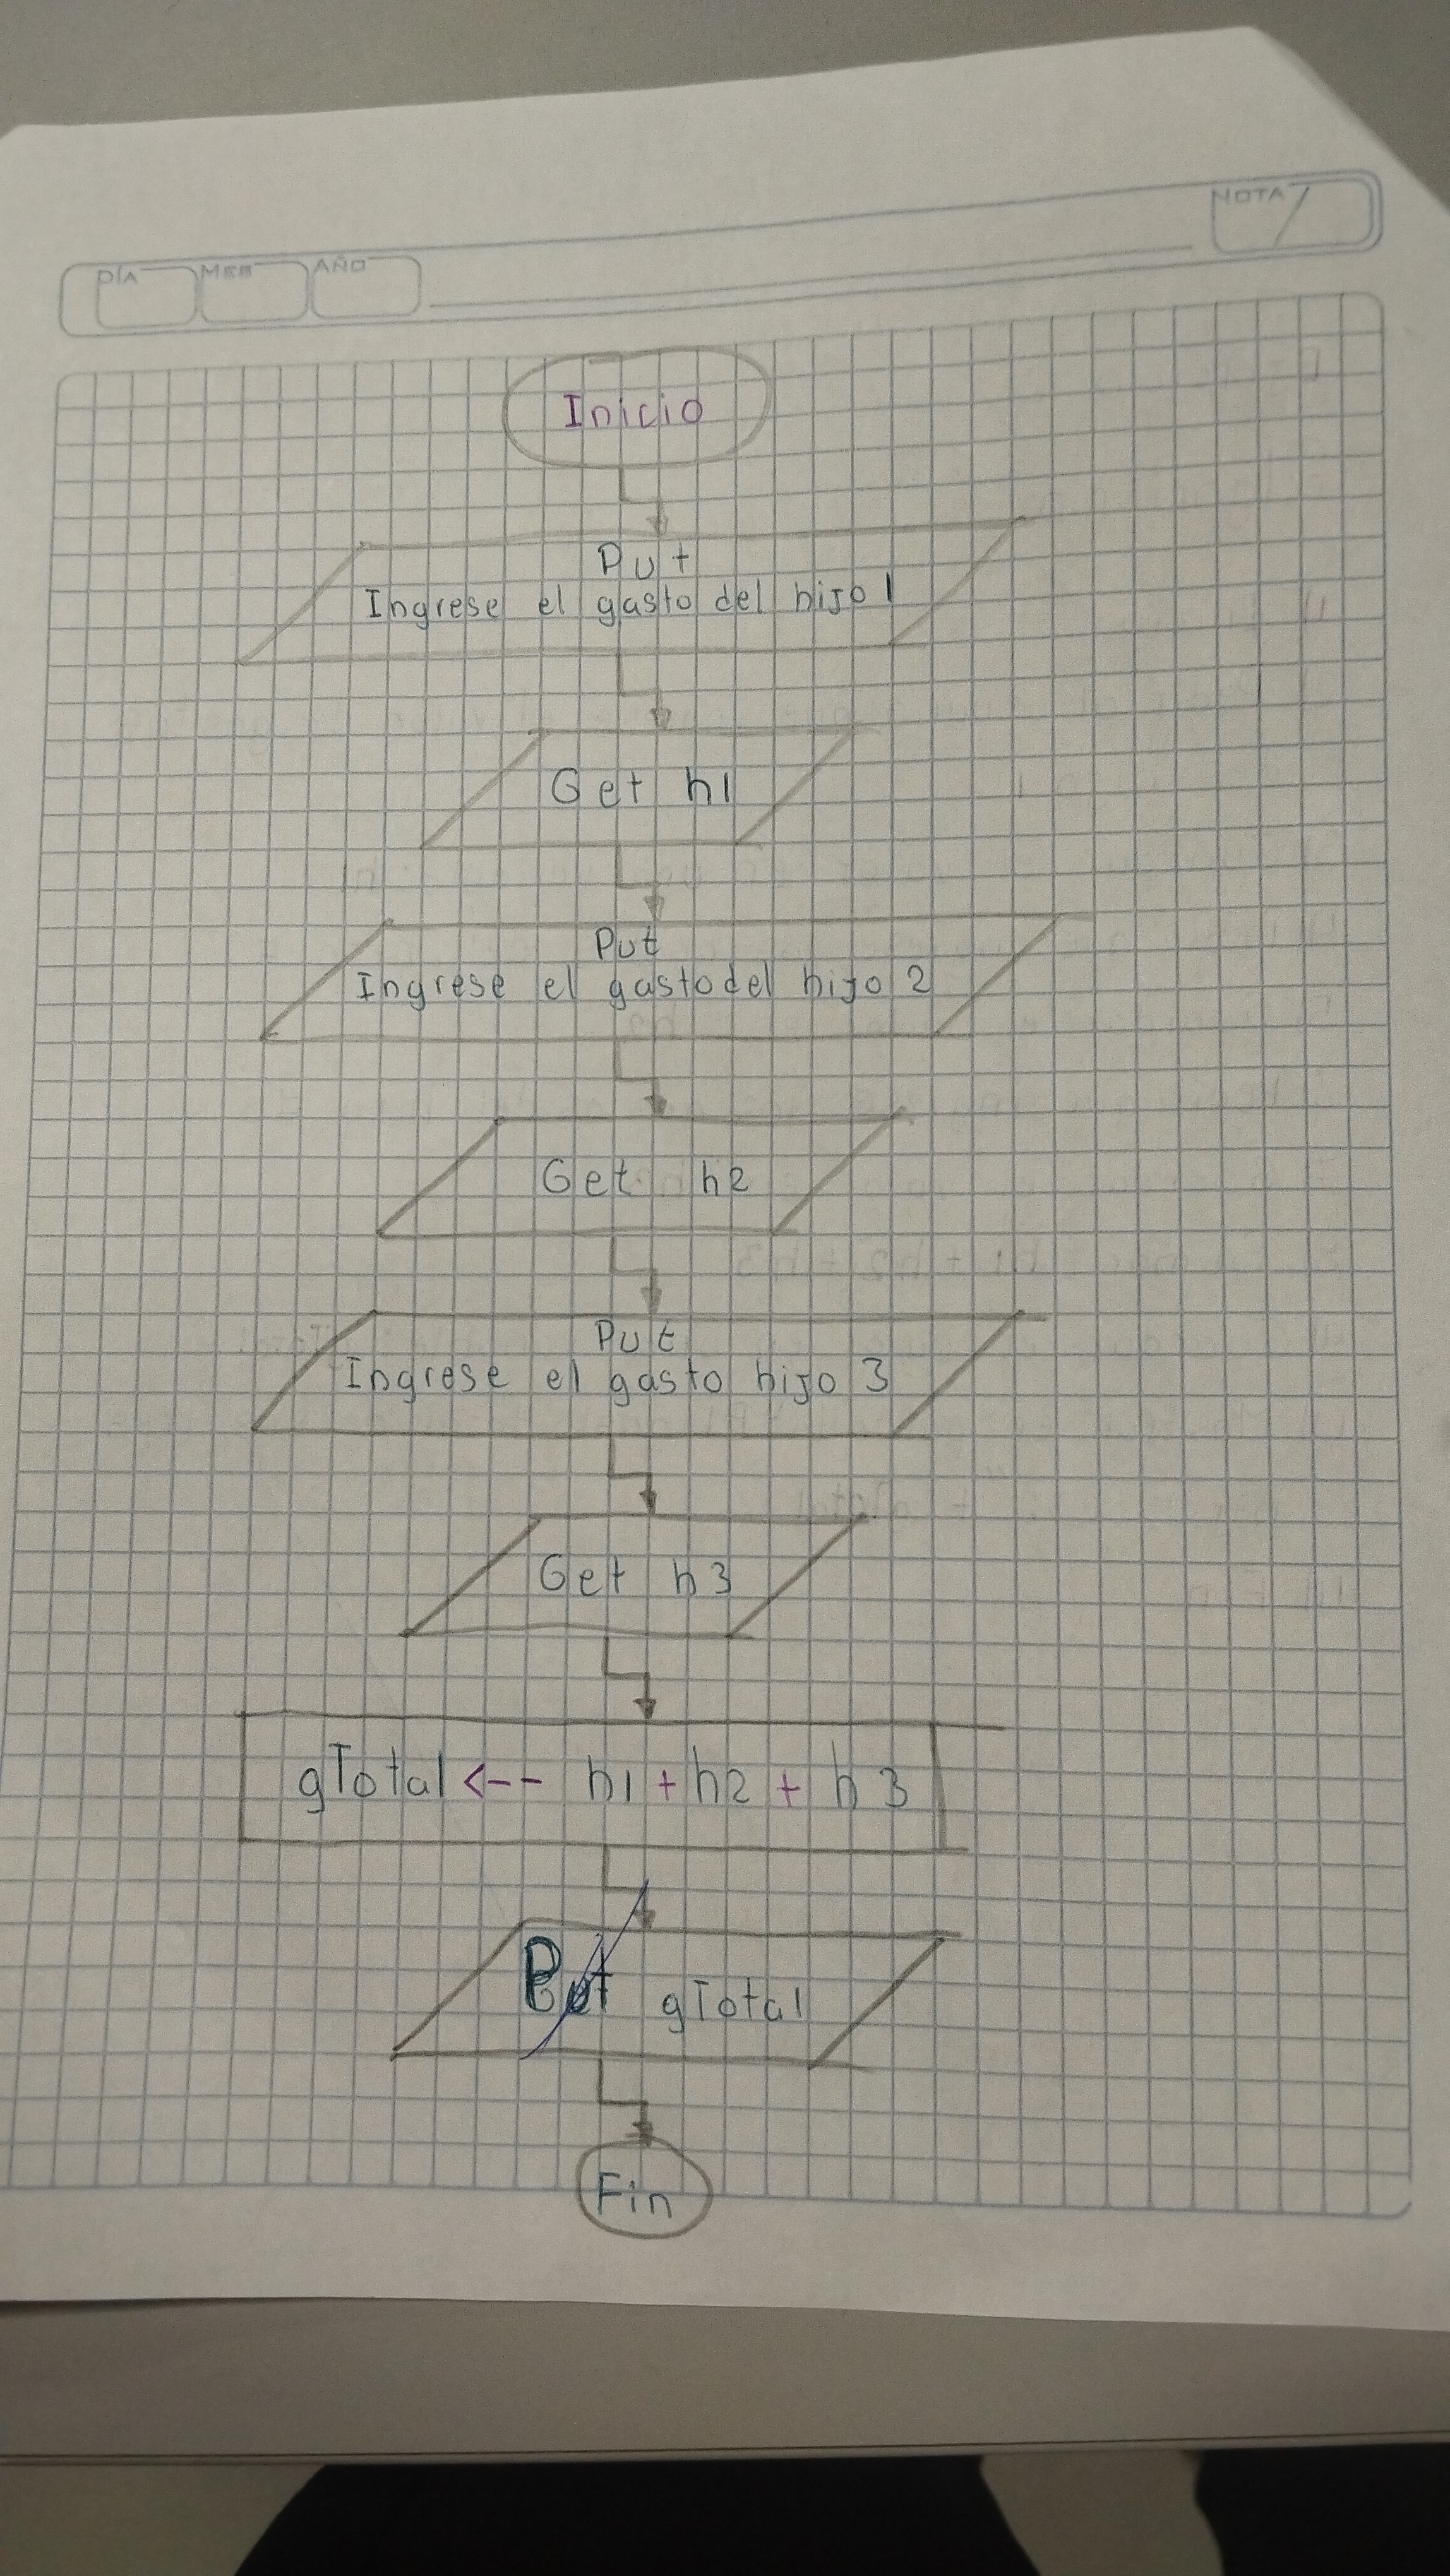 NOTA
DÍA MES AÑO
Inicio
Put
Ingrese el gasto del hijo 1
Get h1
Put
Ingrese el gasto del hijo 2
Get h2
Put
Ingrese el gasto hijo 3
Get h3
gTotal <-- h1 + h2 + h3
Put gTotal
Fin